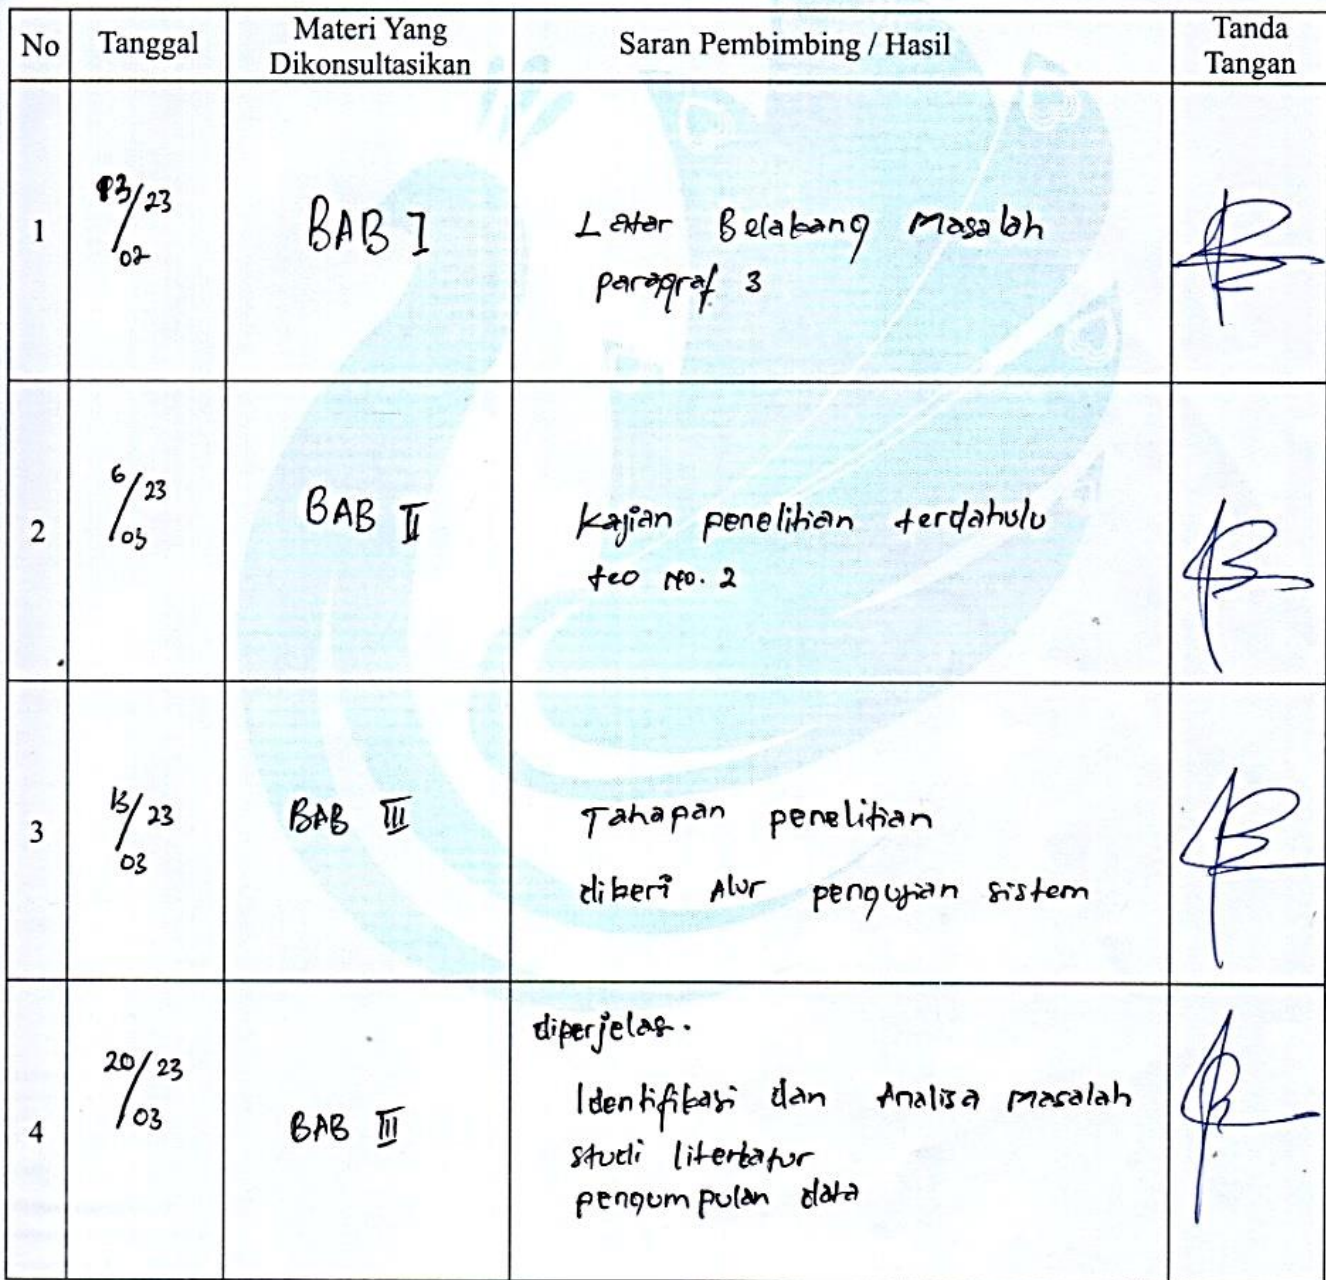 No Tanggal Materi Yang Dikonsultasikan Saran Pembimbing / Hasil Tanda Tangan
1 /23 02 BAB I Latar Belakang Masalah
paragraf 3
2 6/23 03 BAB II Kajian penelitian terdahulu
teo no. 2
3 13/23 03 BAB III Tahapan penelitian
diberi Alur pengujian sistem
diperjelas.
4 20/23 03 BAB III Identifikasi dan Analisa masalah
studi literatur
pengumpulan data